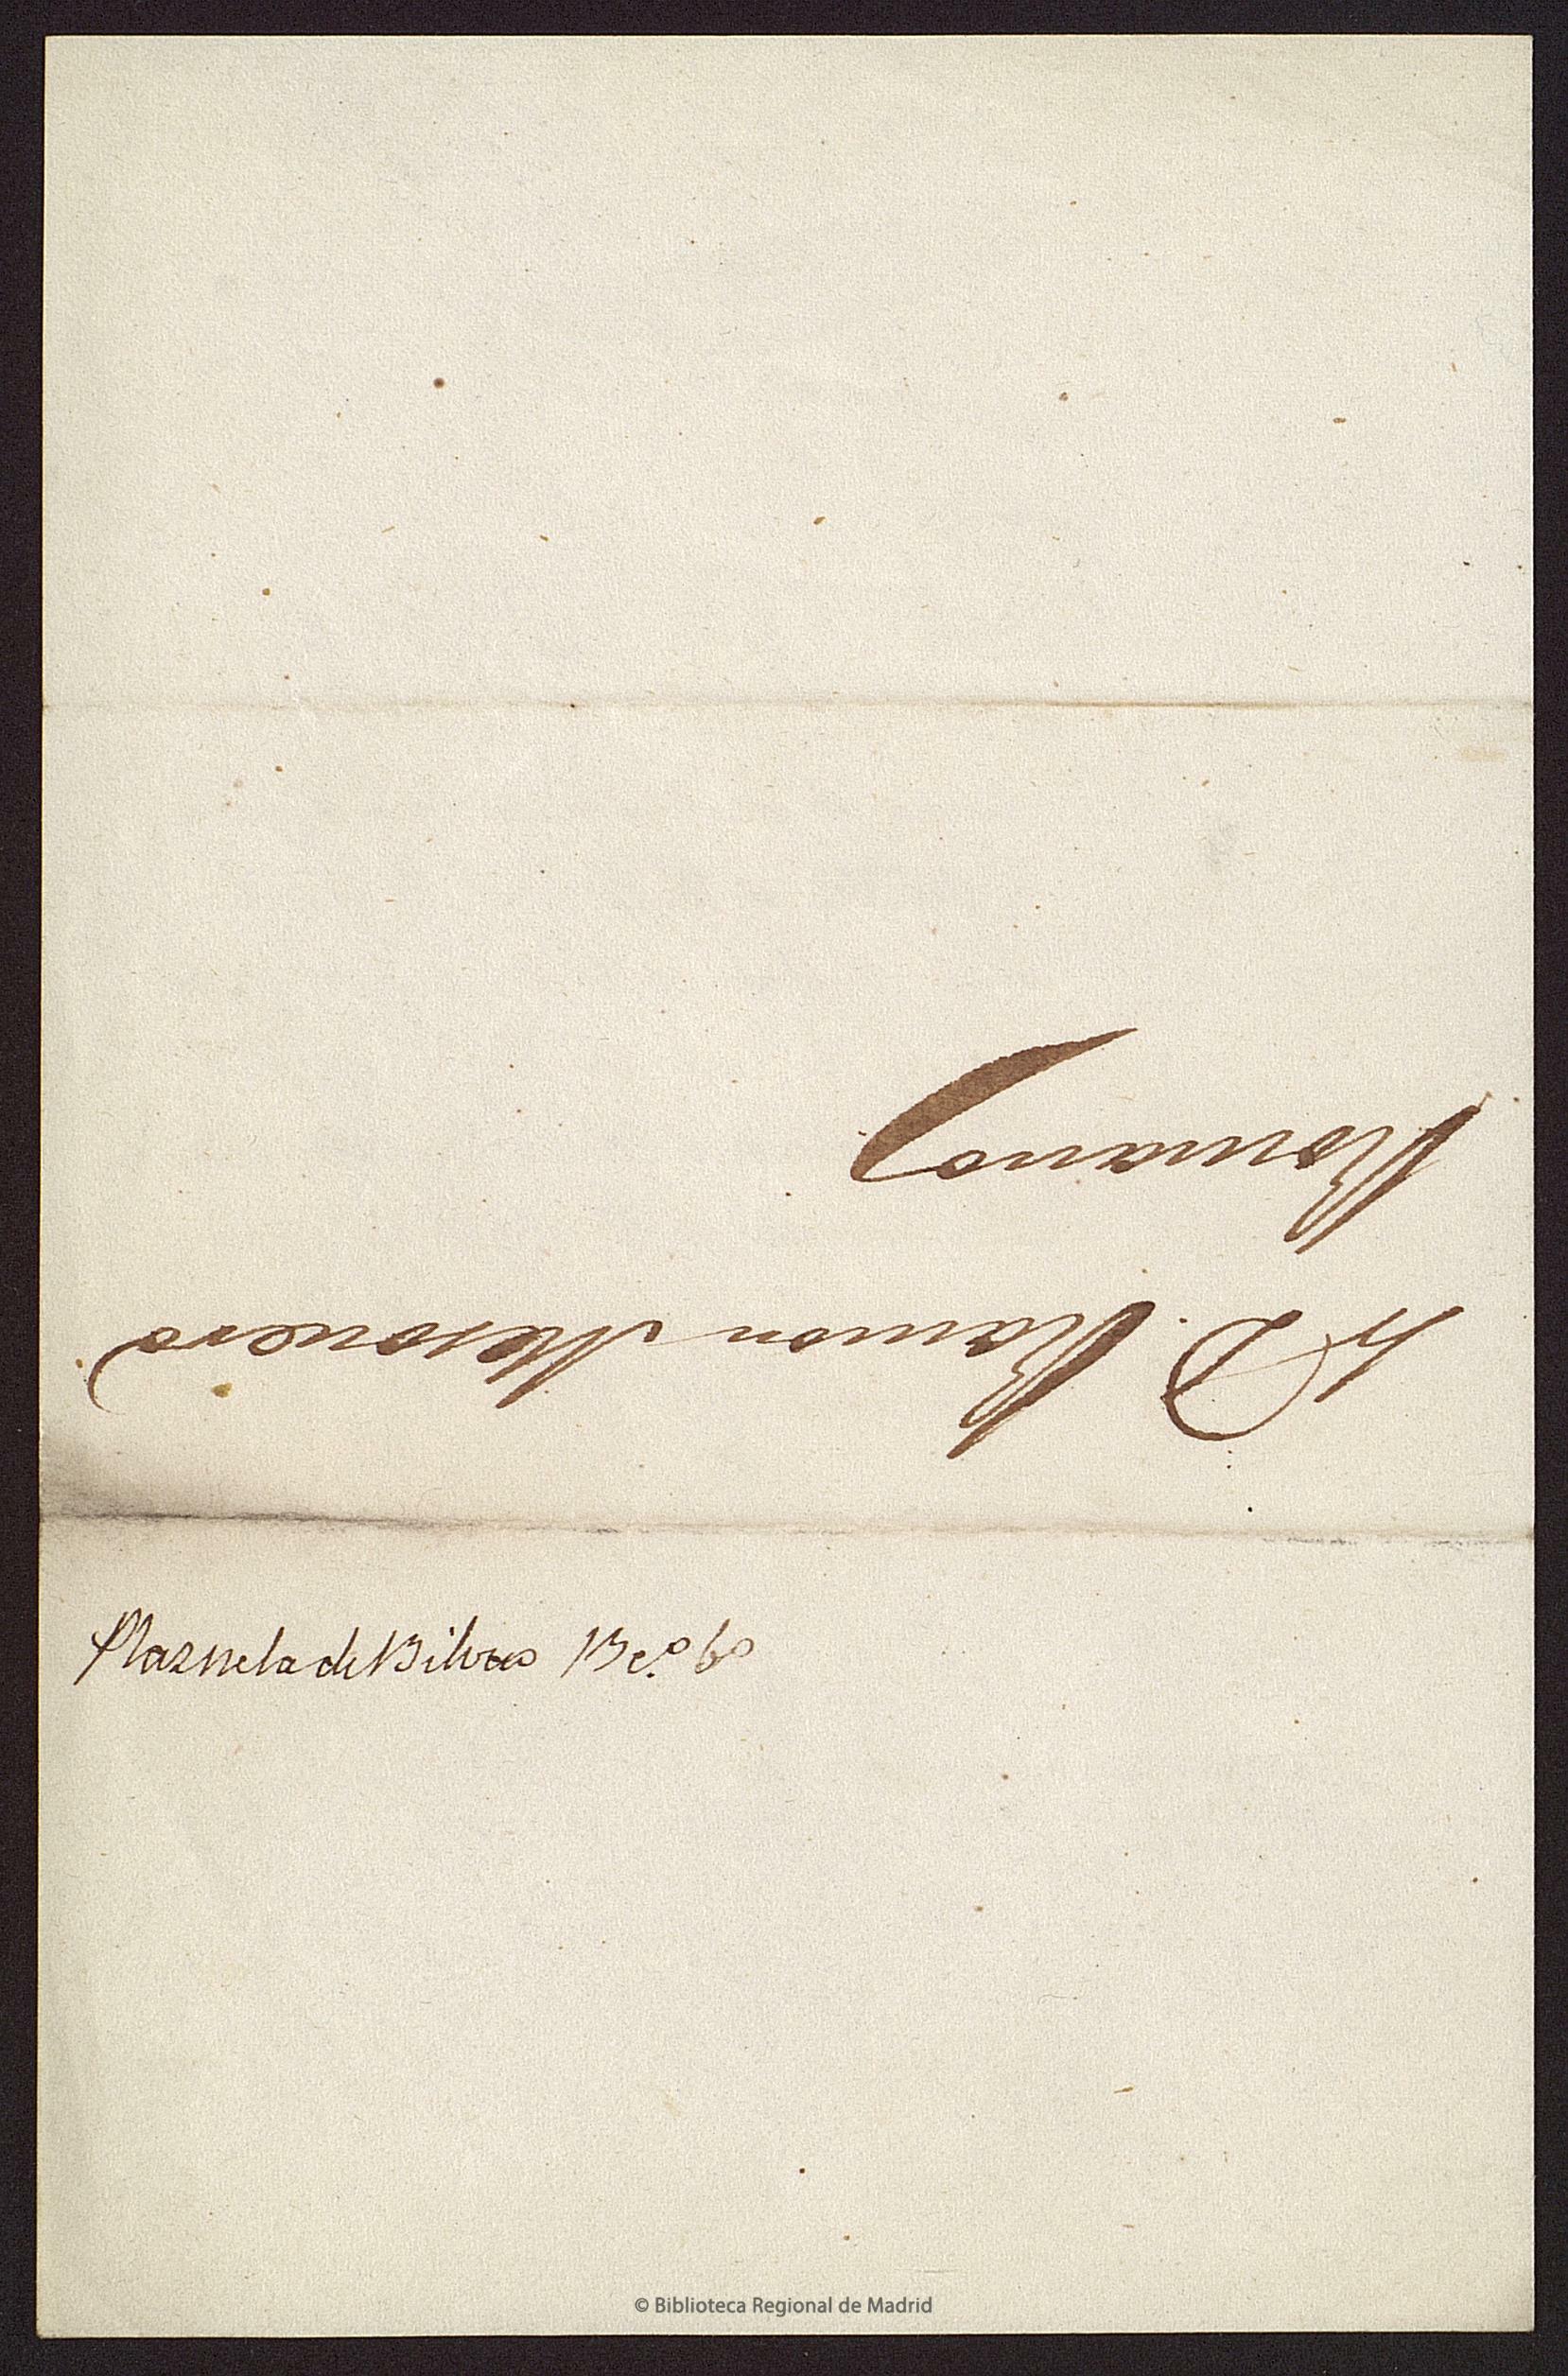 Sr D. Ramon Mesonero
Romanos
Plazuela de Bilvao
© Biblioteca Regional de Madrid